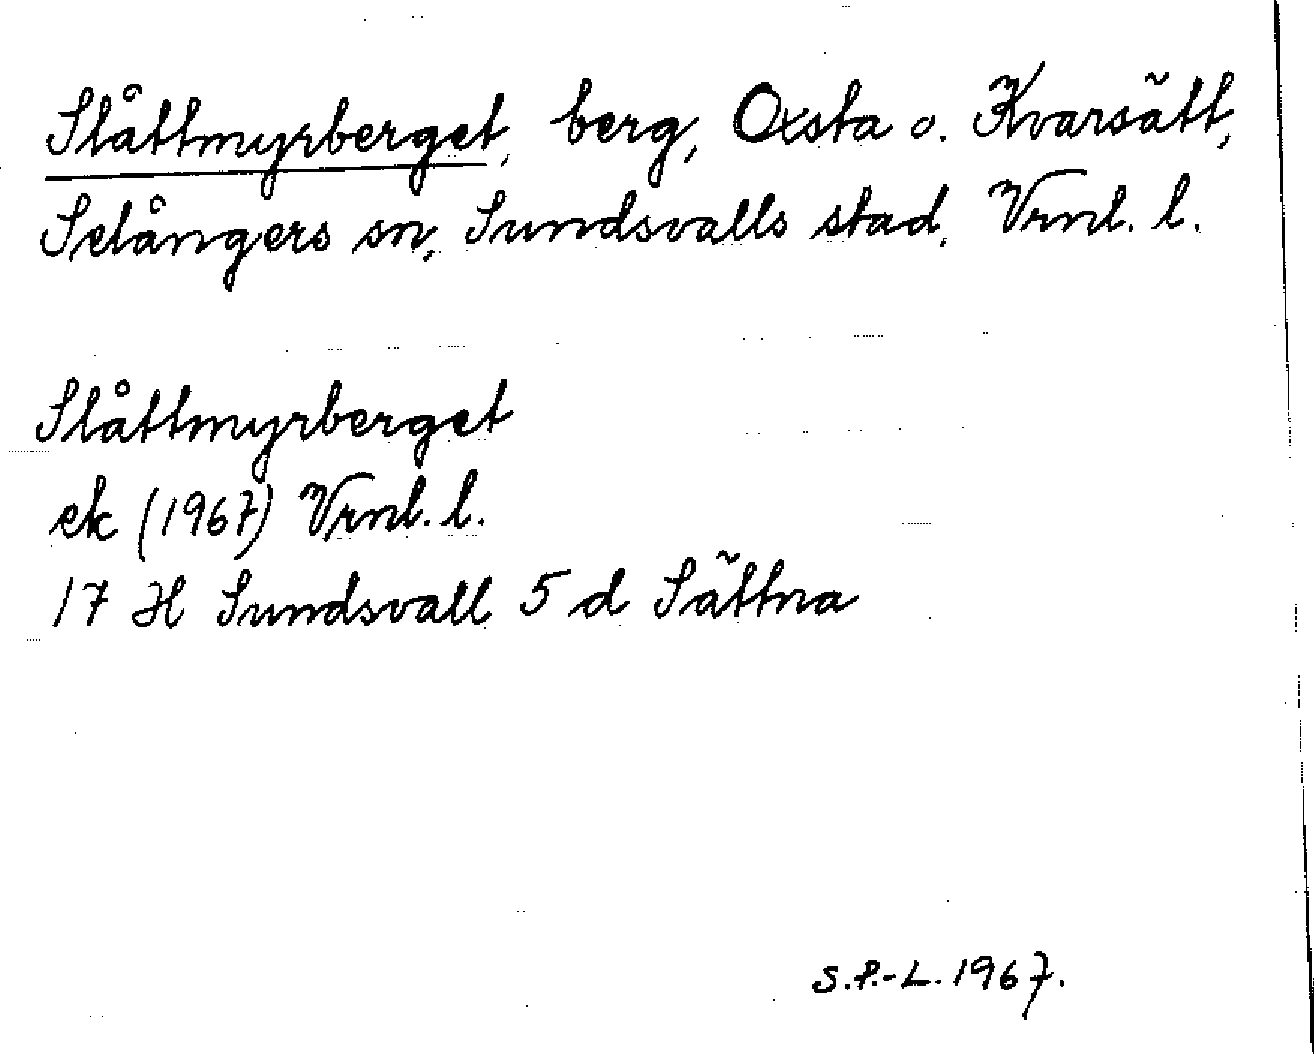 Slåttmyrberget, berg, Oxsta o. Kvarsätt,
Selångers sn, Sundsvalls stad, Vrnl. l.
Slåttmyrberget
ek (1967) Vrnl. l.
17 H Sundsvall 5 d Sättna
S.P.-L. 1967.